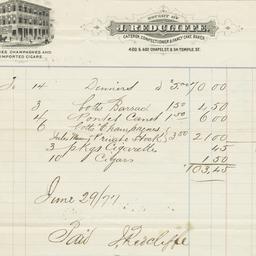 BOUGHT OF
J. REDCLIFFE
CATERER, CONFECTIONER & FANCY CAKE BAKER
400 & 402 CHAPEL ST. & 54 TEMPLE ST.
ES CHAMPAGNES AND
IMPORTED CIGARS.
To 14 Dinners @ 5.00 70 00
3 Botts Barsac 1.50 4.50
4 Pontet Canet 1.50 6 00
6 Botts Champagnes
Private Stock } 3.50 21 00
3 pkgs Cigarettes 45
10 Cigars 1.50
103.45
June 29/77
Paid J Redcliffe